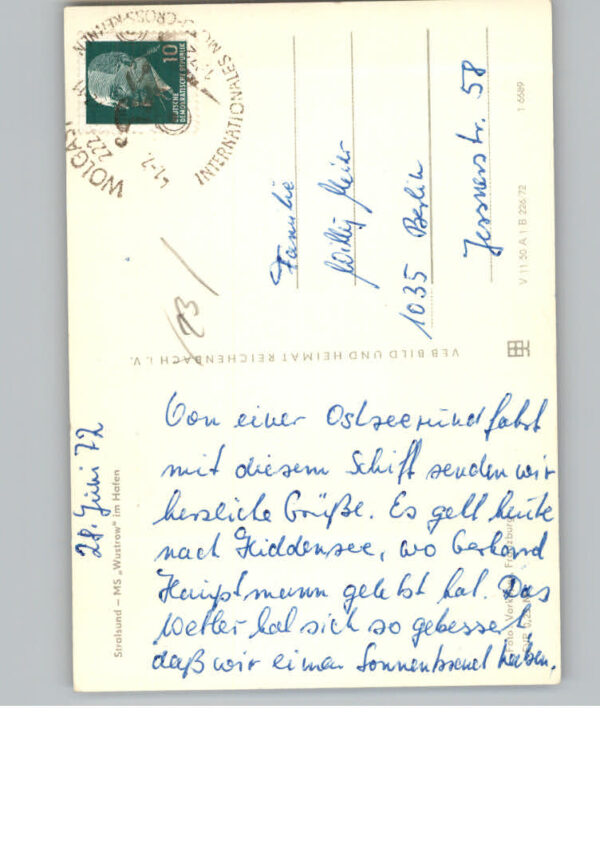 Von einer Ostseerundfahrt
mit diesem Schiff senden wir
herzliche Grüße. Es geht heute
nach Hiddensee, wo Gerhard
Hauptmann gelebt hat. Das
Wetter hat sich so gebessert
daß wir einen Sonnenbrand haben.
28. Juni 72
Stralsund – MS „Wustrow“ im Hafen
VEB BILD UND HEIMAT REICHENBACH I. V.
Familie
Willy Meier
1035 Berlin
Jessnerstr. 58
V 11 50 A 1 B 226/72
1 6689
10
DEUTSCHE
DEMOKRATISCHE REPUBLIK
WOLGAST
222
INTERNATIONALES
23